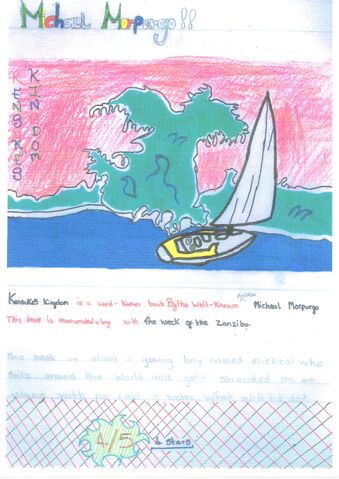 Michael Morpurgo!!
KENSUKE'S
KINGDOM
Kensuke's Kingdom is a word-known book By the Well-Known author Micheal Morpurgo
This book is
with The wreck of the Zanzibar.
This book is about a young boy named micheal who
sails around the world and gets stranded on an
island with no food or water. What will he do?
4/5
4 stars